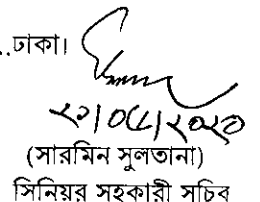 ..ঢাকা।
২০/০৫/২০২০
(সারমিন সুলতানা)
সিনিয়র সহকারী সচিব